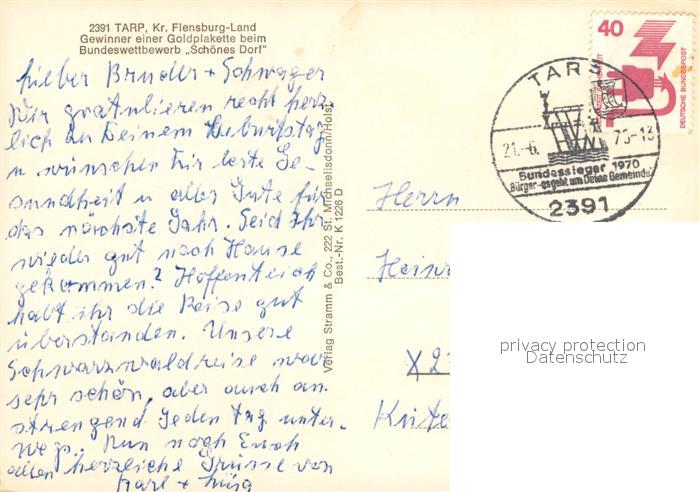 2391 TARP, Kr. Flensburg-Land
Gewinner einer Goldplakette beim
Bundeswettbewerb „Schönes Dorf"
lieber Bruder + Schwager
Wir gratulieren recht herz
lich zu Deinem Geburtstag
u wünschen Dir beste Ge-
sundheit u alles Gute für
das nächste Jahr. Seid Ihr
wieder gut nach Hause
gekommen? Hoffentlich
habt ihr die Reise gut
überstanden. Unsere
Schwarzwaldreise war
sehr schön, aber auch an
strengend jeden Tag unter-
wegs. Nun noch Euch
allen herzliche Grüsse von
Karl +
Verlag Stramm & Co., 222 St. Michaelisdonn/Holst.
Best.-Nr. K 1226 D
40
DEUTSCHE BUNDESPOST
TARP
21.-6. 75-13
Bundessieger 1970
Bürger-es geht um Deine Gemeinde
2391
Herrn
Heinr
X2
privacy protection
Datenschutz